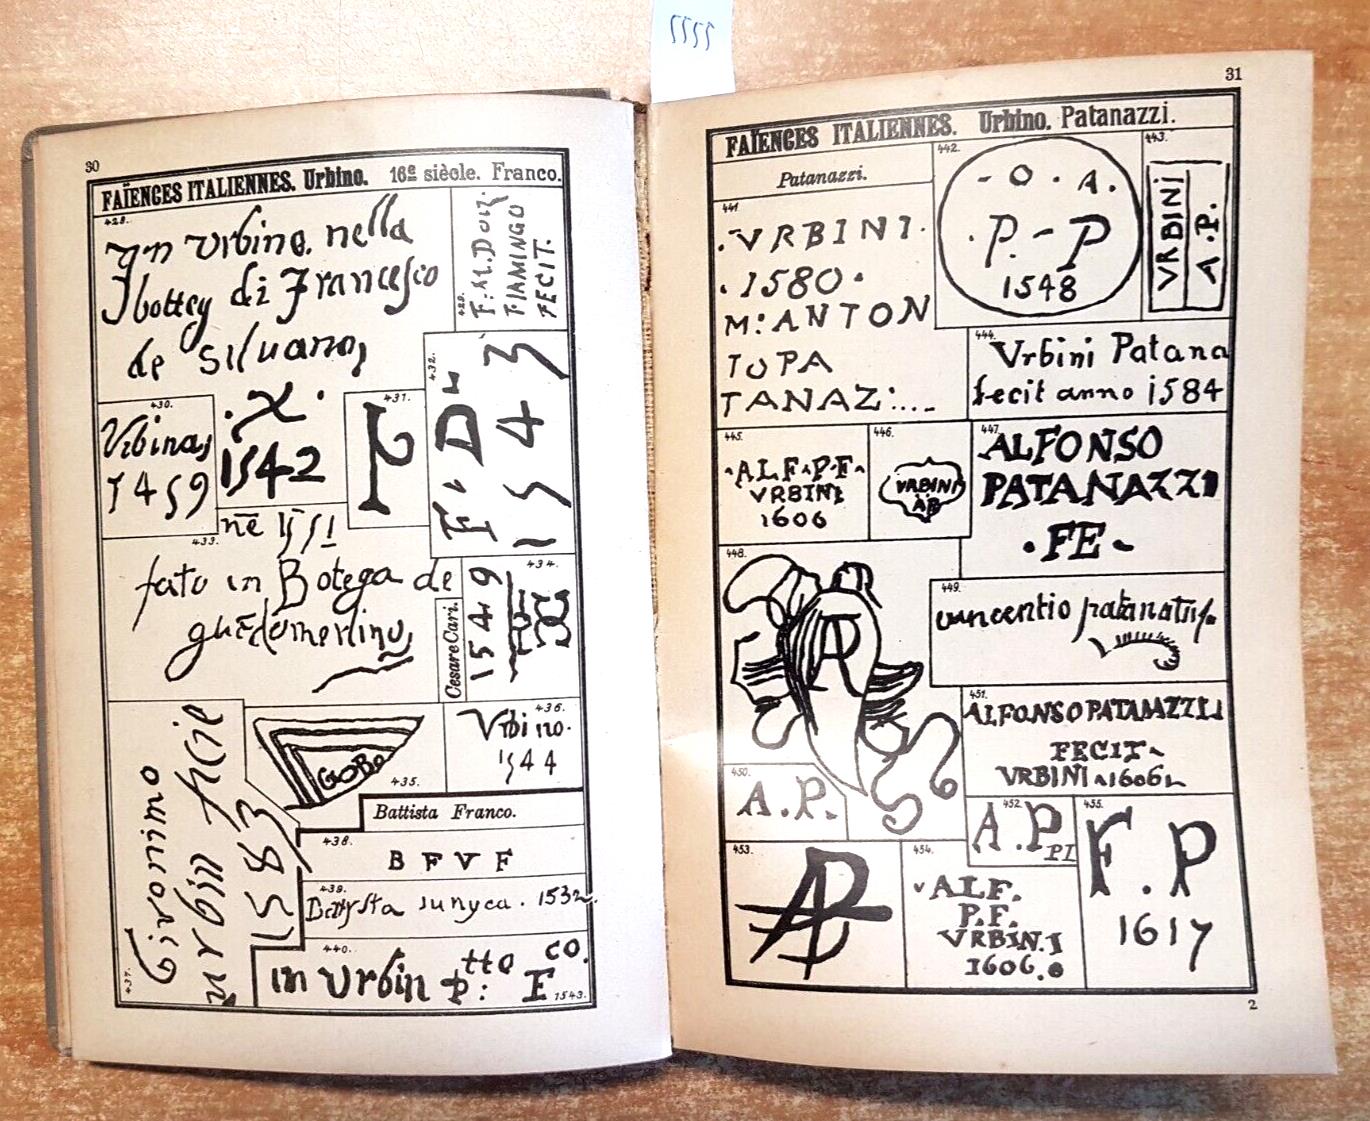 30
FAÏENCES ITALIENNES. Urbino. 16e siècle. Franco.
428.
In urbino nella
botteg di Francesco
de Siluano
.X.
1542
429.
F. M. Doiz
FIAMINGO
FECIT.
430.
Urbinas
1459
431.
432.
F. D.
1543
433.
nē 1551
fato in Botega de
guido merlino
Cesare Cari.
434.
1549
435.
GOBO
436.
Urbino.
1544
437.
Gironimo
urbin fecie
1583
Battista Franco.
438.
B F V F
439.
Battysta iunyca. 1532.
440.
in Urbin ptto co.
F
1543.
31
FAÏENCES ITALIENNES. Urbino. Patanazzi.
Patanazzi.
441.
.VRBINI.
.1580.
M: ANTON
IO PA
TANAZ:....
442.
- O . A.
.P. - P
1548
443.
VRBINI
A.P.
444.
Vrbini Patana
fecit anno 1584
445.
ALF P F
VRBINI
1606
446.
VRBINI
AB
447.
ALFONSO
PATANAZZI
.FE
448.
AP
449.
uincentio patanatij f.
450.
A.P.
451.
ALFONSO PATANAZZI
FECIT
VRBINI 1606
452.
A.P
PI
453.
AP
454.
ALF.
P.F.
VRBIN.I
1606.
455.
F.P
1617
2